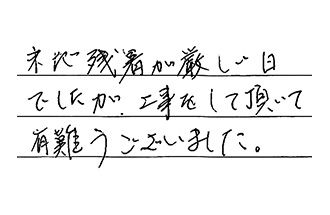 残暑が厳しい日
でしたが、工事をして頂いて
有難うございました。